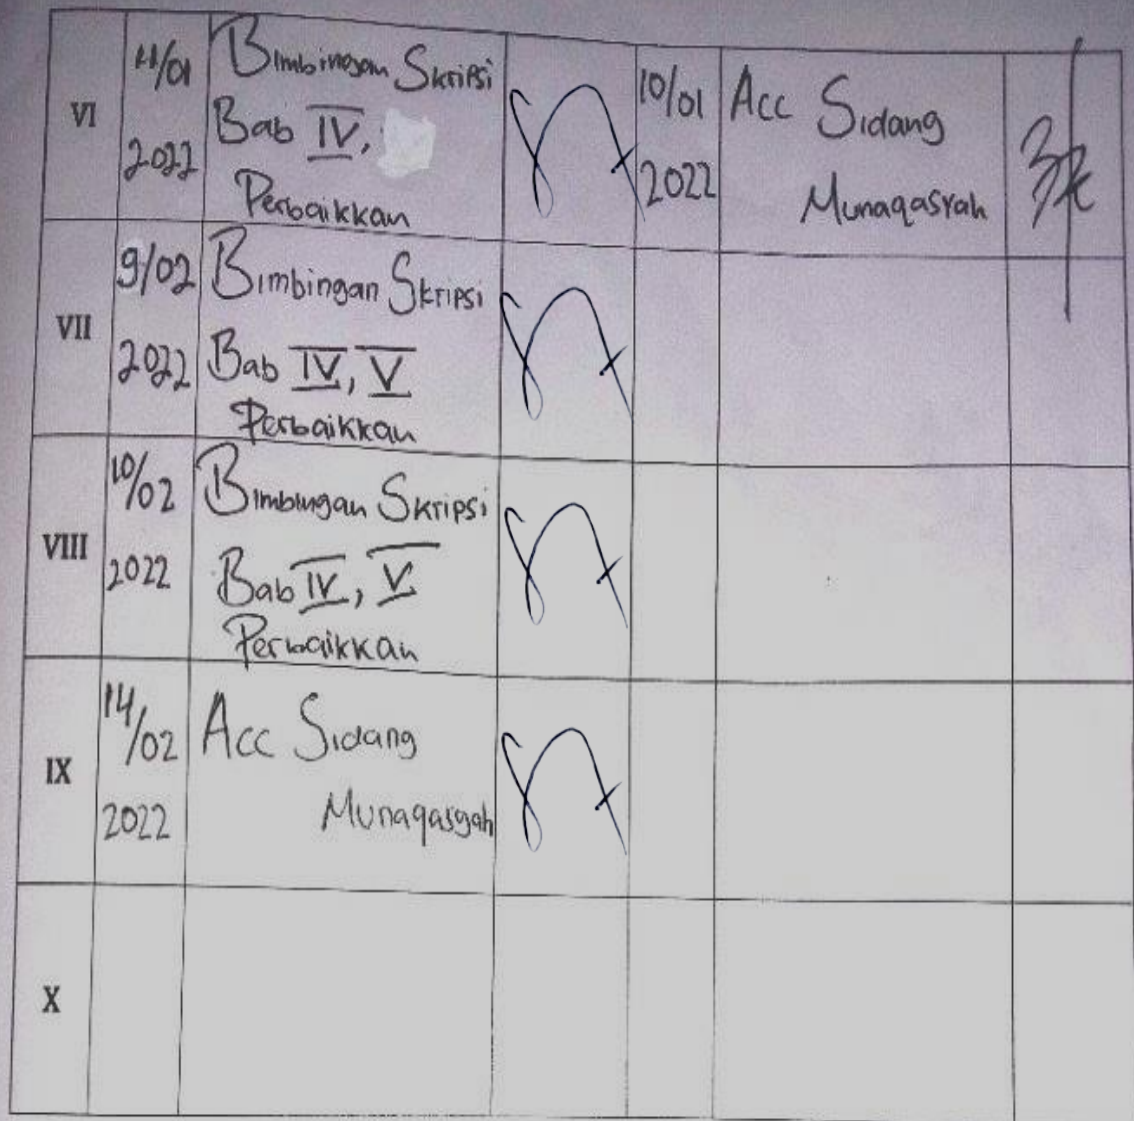 VI
11/01
2022
Bimbingan Skripsi
Bab IV,
Perbaikkan
10/01
2022
Acc Sidang
Munaqasyah
VII
9/02
2022
Bimbingan Skripsi
Bab IV, V
Perbaikkan
VIII
10/02
2022
Bimbingan Skripsi
Bab IV, V
Perbaikkan
IX
14/02
2022
Acc Sidang
Munaqasyah
X